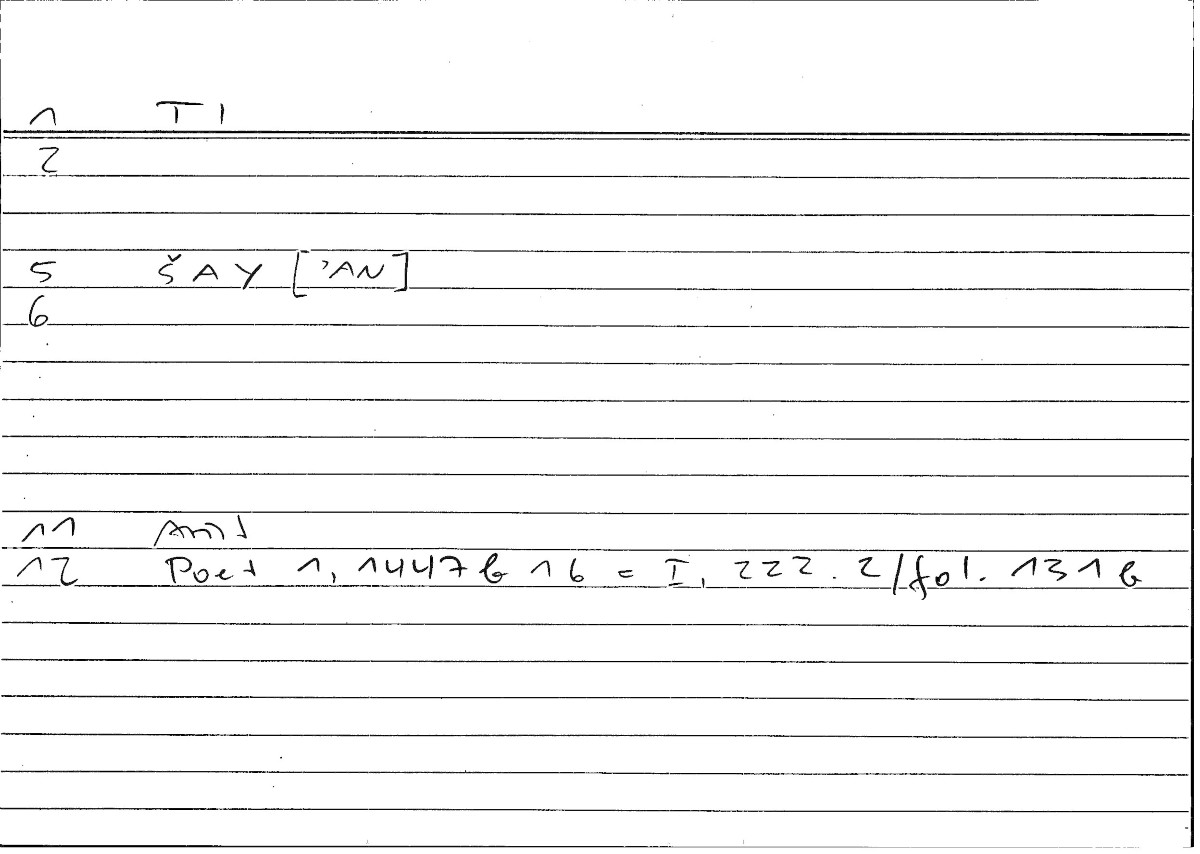 1 TI
2
5 ŠAY [ʾAN]
6
11 Arist
12 Poet 1, 1447b16 = I, 222.2/fol. 131b